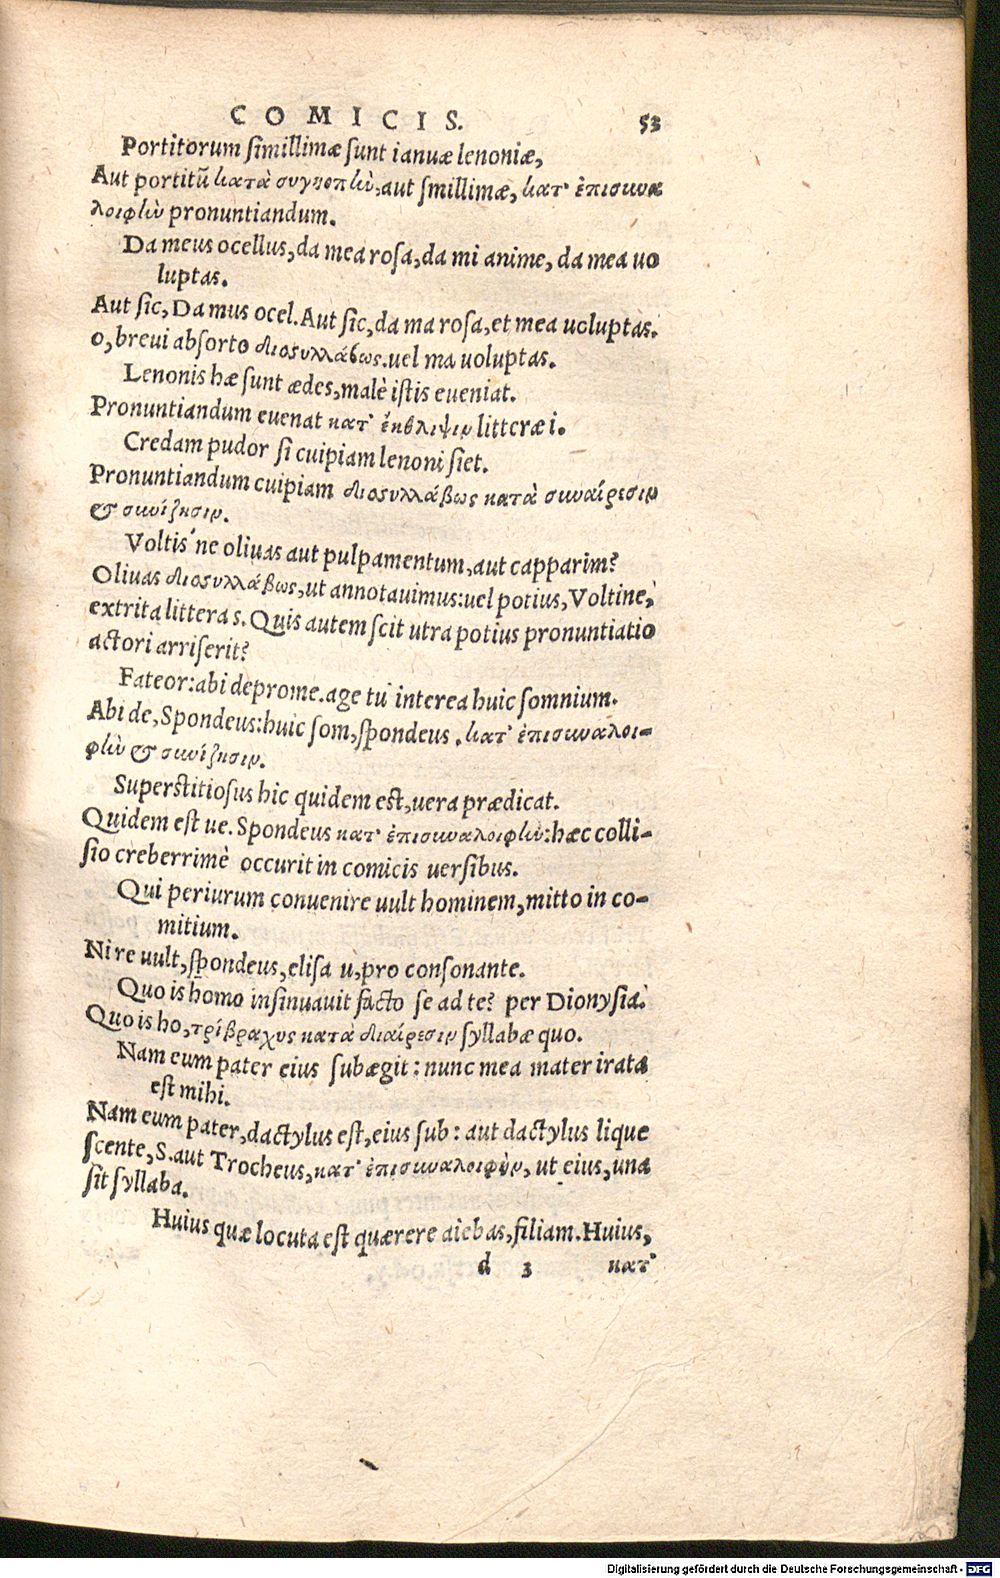 COMICIS. 53
Portitorum simillimæ sunt ianuæ lenoniæ,
Aut portitũ κατὰ συγκοπὴν, aut smillimæ, κατ' ἐπισυνα
λοιφὴν pronuntiandum.
Da meus ocellus, da mea rosa, da mi anime, da mea uo
luptas.
Aut sic, Da mus ocel. Aut sic, da ma rosa, et mea uoluptas.
o, breui absorto δισυλλάβως. uel ma uoluptas.
Lenonis hæ sunt ædes, malè istis eueniat.
Pronuntiandum euenat κατ' ἔκθλιψιν litteræ i.
Credam pudor si cuipiam lenoni siet.
Pronuntiandum cuipiam δισυλλάβως κατὰ συναίρεσιν
& συνίζησιν.
Voltis'ne oliuas aut pulpamentum, aut capparim?
Oliuas δισυλλάβως, ut annotauimus: uel potius, Voltine,
extrita littera s. Quis autem scit utra potius pronuntiatio
actori arriserit?
Fateor: abi deprome. age tu interea huic somnium.
Abi de, Spondeus: huic som, spondeus. κατ' ἐπισυναλοι-
φὴν & συνίζησιν.
Superstitiosus hic quidem est, uera prædicat.
Quidem est ue. Spondeus κατ' ἐπισυναλοιφὴν: hæc colli-
sio creberrimè occurit in comicis uersibus.
Qui periurum conuenire uult hominem, mitto in co-
mitium.
Ni re uult, spondeus, elisa u, pro consonante.
Quo is homo insinuauit facto se ad te? per Dionysia.
Quo is ho, τρίβραχυς κατὰ διαίρεσιν syllabæ quo.
Nam eum pater eius subægit: nunc mea mater irata
est mihi.
Nam eum pater, dactylus est, eius sub: aut dactylus lique
scente, S. aut Trocheus, κατ' ἐπισυναλοιφὴν, ut eius, una
sit syllaba.
Huius quæ locuta est quærere aiebas, filiam. Huius,
d 3 κατ'
Digitalisierung gefördert durch die Deutsche Forschungsgemeinschaft - DFG